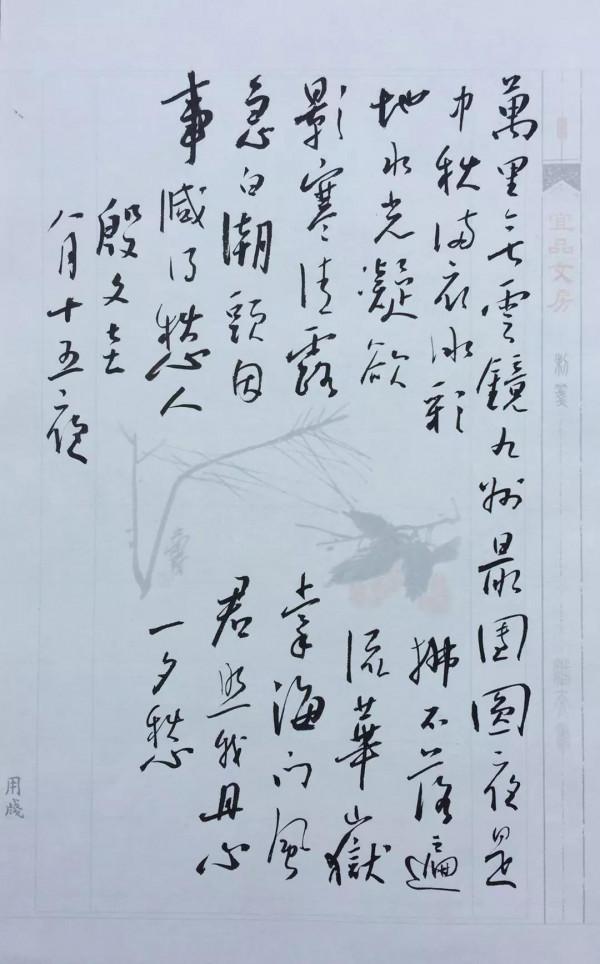 萬里無雲鏡九州最團圓夜是
中秋滿衣冰彩拂不落遍
地水光凝欲流華嶽
影寒清露掌海門風
急白潮頭因君照我丹心
事減得愁人一夕愁
殷文圭
八月十五夜
宜品文房
用牋